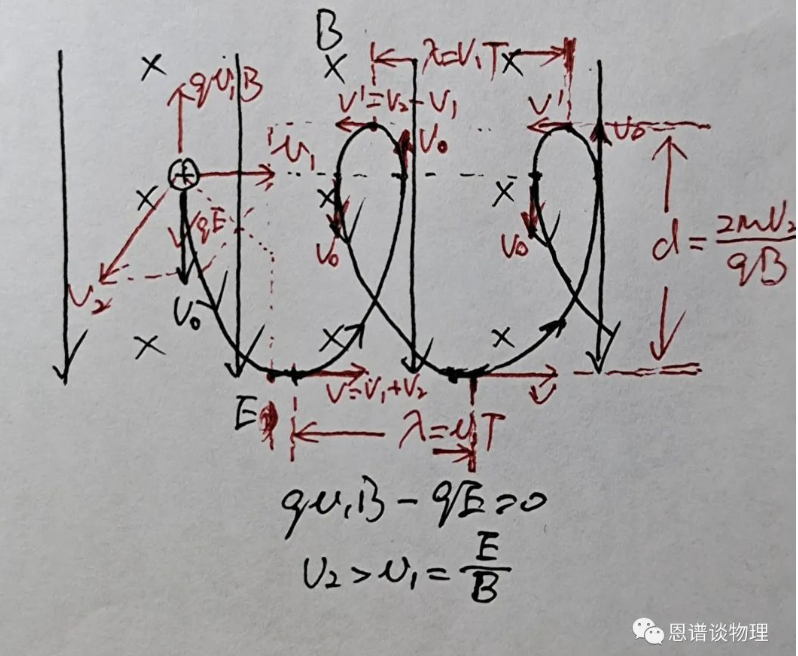 B
λ=v₁T
qv₁B
v'=v₂-v₁
v'
v₀
v₀
v₁
qE
v₂
v₀
v₀
v₀
d=2mv₂/qB
E
v=v₁+v₂
v
λ=v₁T
qv₁B-qE=0
v₂>v₁=E/B
恩谱谈物理